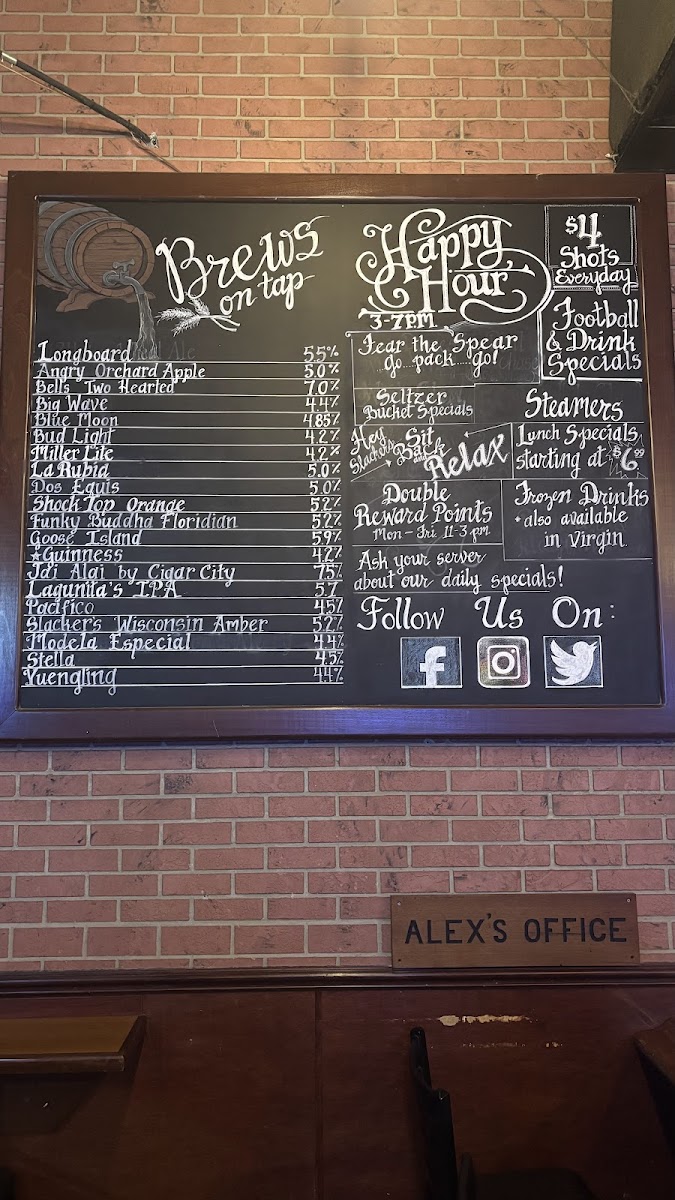 Brews
on tap
Longboard 5.5%
Angry Orchard Apple 5.0%
Bells Two Hearted 7.0%
Big Wave 4.4%
Blue Moon 4.85%
Bud Light 4.2%
Miller Lite 4.2%
La Rubia 5.0%
Dos Equis 5.0%
Shock Top Orange 5.2%
Funky Buddha Floridian 5.2%
Goose Island 5.9%
★Guinness 4.2%
Jai Alai by Cigar City 7.5%
Lagunita's IPA 5.7
Pacifico 4.5%
Slacker's Wisconsin Amber 5.2%
Modela Especial 4.4%
Stella 4.5%
Yuengling 4.4%
Happy
Hour
3-7 P.M.
$4
Shots
Everyday
Football
& Drink
Specials
Fear the Spear
Go...pack...go!
Seltzer
Bucket Specials
Steamers
Hey
Slackers
Sit
Back
and
Relax
Lunch Specials
starting at $6.99
Double
Reward Points
Mon - Fri 11-3 pm
Frozen Drinks
*also available
in Virgin
Ask your server
about our daily specials!
Follow Us On:
f
ALEX'S OFFICE